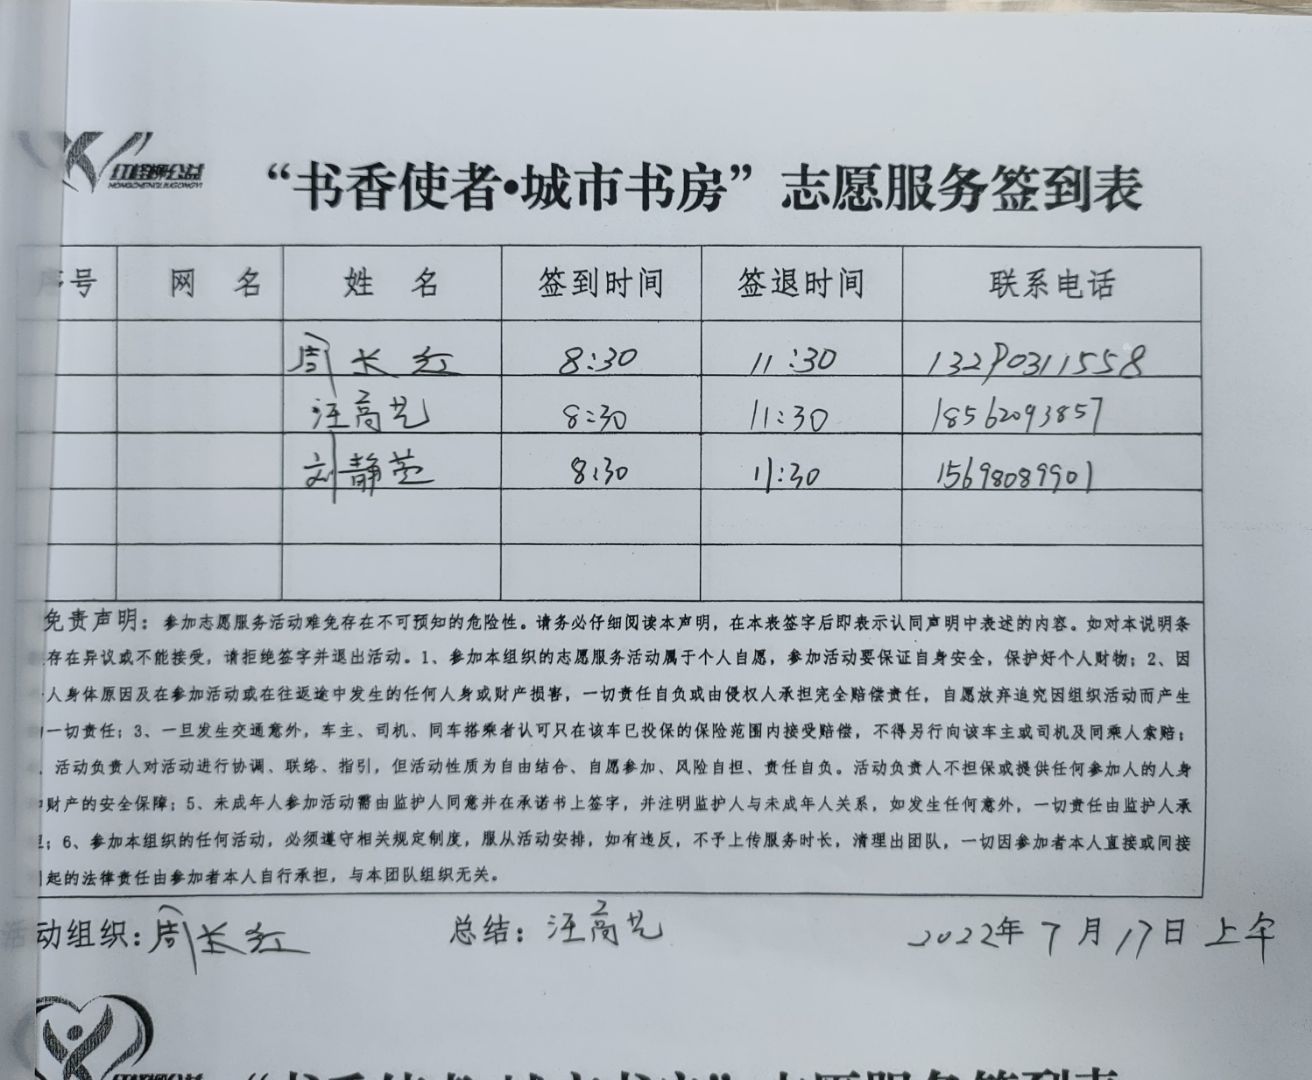 红橙狮公益
“书香使者•城市书房”志愿服务签到表
序号 网 名 姓 名 签到时间 签退时间 联系电话
周长红 8:30 11:30 13290311558
汪高艺 8:30 11:30 18562093857
刘静芸 8:30 11:30 15698089901
免责声明：参加志愿服务活动难免存在不可预知的危险性。请务必仔细阅读本声明，在本表签字后即表示认同声明中表述的内容。如对本说明条
存在异议或不能接受，请拒绝签字并退出活动。1、参加本组织的志愿服务活动属于个人自愿，参加活动要保证自身安全，保护好个人财物；2、因
人身体原因及在参加活动或在往返途中发生的任何人身或财产损害，一切责任自负或由侵权人承担完全赔偿责任，自愿放弃追究因组织活动而产生
一切责任；3、一旦发生交通意外，车主、司机、同车搭乘者认可只在该车已投保的保险范围内接受赔偿，不得另行向该车主或司机及同乘人索赔；
、活动负责人对活动进行协调、联络、指引，但活动性质为自由结合、自愿参加、风险自担、责任自负。活动负责人不担保或提供任何参加人的人身
财产的安全保障；5、未成年人参加活动需由监护人同意并在承诺书上签字，并注明监护人与未成年人关系，如发生任何意外，一切责任由监护人承
；6、参加本组织的任何活动，必须遵守相关规定制度，服从活动安排，如有违反，不予上传服务时长，清理出团队，一切因参加者本人直接或间接
起的法律责任由参加者本人自行承担，与本团队组织无关。
活动组织：周长红 总结：汪高艺 2022年7月17日上午
“书香使者•城市书房”志愿服务签到表